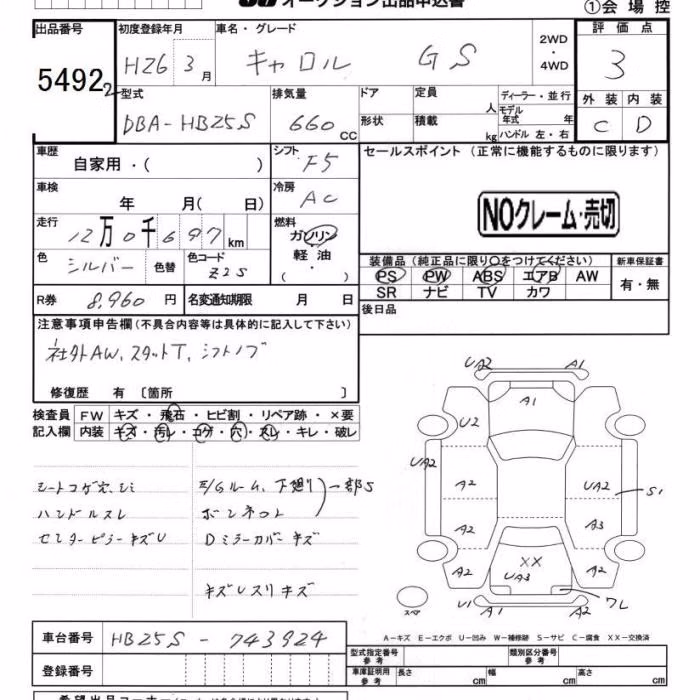 オークション出品申込書
①会場控
出品番号 5492
初度登録年月 H26 3月
車名・グレード キャロル GS
2WD・4WD
評価点 3
外装 C 内装 D
型式 DBA-HB25S
排気量 660cc
ドア 形状
定員 人 積載 kg
ディーラー・並行
モデル年式 年
ハンドル 左・右
車歴 自家用・( )
シフト F5
セールスポイント(正常に機能するものに限ります)
車検 年 月( 日)
冷房 AC
NOクレーム・売切
走行 12万0千697km
燃料 ガソリン 軽油 ( ・ )
色 シルバー 色替 色コード Z2S
装備品(純正品に限り○をつけてください)
新車保証書 有・無
PS PW ABS エアB AW
SR ナビ TV カワ
R券 8,960円 名変通知期限 月 日
後日品
注意事項申告欄(不具合内容等は具体的に記入して下さい)
社外AW、スタットT、シフトノブ
修復歴 有 〔箇所 〕
検査員 FW キズ・飛石・ヒビ割・リペア跡・×要
記入欄 内装 キズ・汚レ・コゲ・穴・スレ・キレ・破レ
シートコゲ穴、シミ
ハンドルスレ
センターピラーキズU
E/Gルーム、下廻り 一部S
ボンネット
Dミラーカバーキズ
キズUスリキズ
UA2 A1
A1
U2
UA2 A2 UA2 S1
A2 A3
A2 XX A2
UA3
U1 A1 A2 ワレ
スペア
A-キズ E-エクボ U-凹み W-補修跡 S-サビ C-腐食 XX-交換済
車台番号 HB25S-743924
型式指定番号 参考 類別区分番号 参考
登録番号
車庫証明用 参考 長さ cm 幅 cm 高さ cm